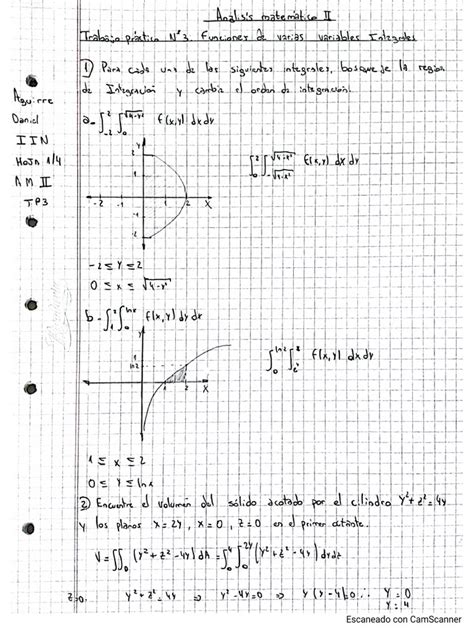 Analisis matemático II
Trabajo práctico N°3. Funciones de varias variables Integrales
1) Para cada una de las siguientes integrales, bosqueje la region
de Integracion y cambie el orden de integracion.
Aguirre
Daniel
IIN
Hoja 1/4
AM II
TP3
a- ∫_{-2}^{2} ∫_{0}^{√(4-y²)} f(x,y) dx dy
∫_{0}^{2} ∫_{-√(4-x²)}^{√(4-x²)} f(x,y) dx dy
Y
2
1
-2 -1 1 2 X
-1
-2
-2 ≤ Y ≤ 2
0 ≤ x ≤ √(4-y²)
b- ∫_{1}^{2} ∫_{0}^{lnx} f(x,y) dy dx
∫_{0}^{ln2} ∫ f(x,y) dx dy
Y
1
ln2
1 2 X
1 ≤ x ≤ 2
0 ≤ y ≤ ln x
2) Encuentre el volumen del sólido acotado por el cilindro y²+z²=4y
y los planos x=2y, x=0, z=0 en el primer octante.
V = ∬_{D} (y²+z²-4y) dA = ∫_{0}^{4} ∫_{0}^{2y} (y²+z²-4y) dydz
z=0. y²+z²=4y ⇒ y²-4y=0 ⇒ y(y-4)=0 ∴ y=0
y=4
Escaneado con CamScanner